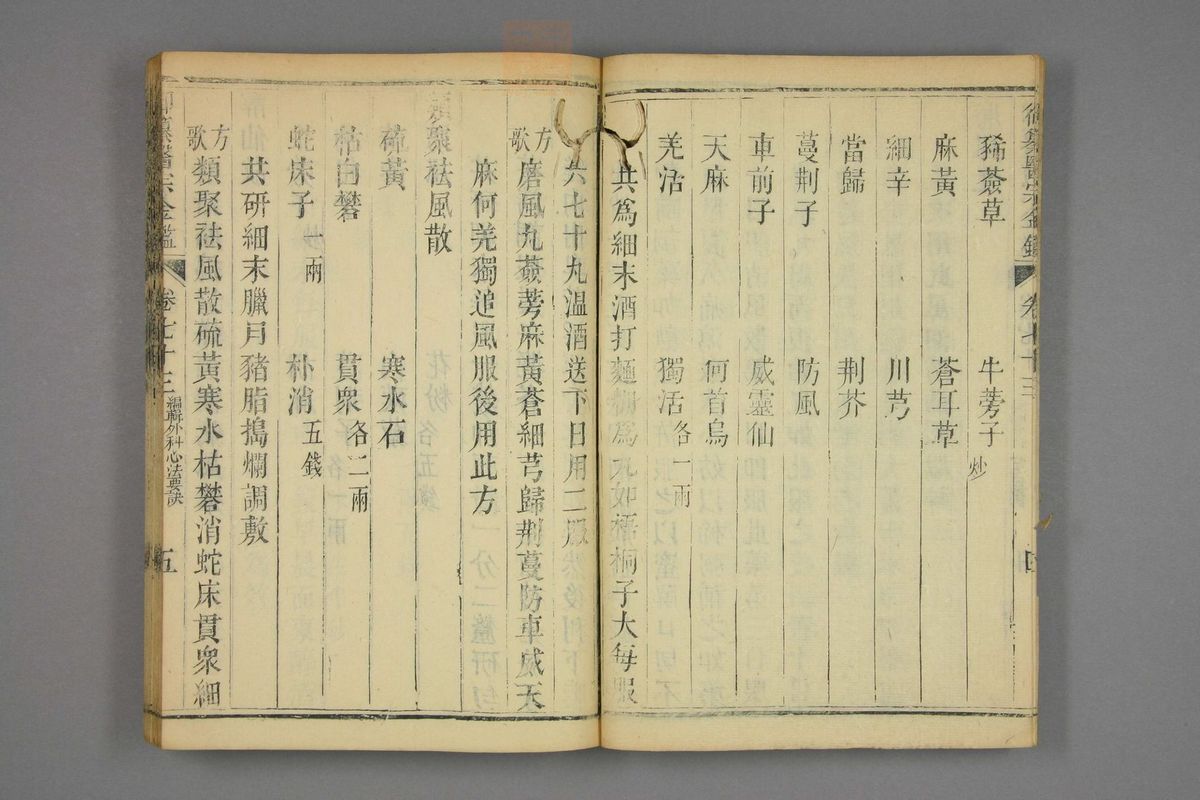 御纂醫宗金鑑 卷七十三
豨薟草 牛蒡子炒
麻黃 蒼耳草
細辛 川芎
當歸 荆芥
蔓荆子 防風
車前子 威靈仙
天麻 何首烏
羌活 獨活各一兩
共爲細末酒打麵糊爲丸如梧桐子大每服
六七十丸温酒送下日用二服
方歌 磨風丸薟蒡麻黃蒼細芎歸荆蔓防車威天
麻何羌獨追風服後用此方
類聚祛風散
硫黃 寒水石
枯白礬 貫衆各二兩
蛇床子一兩 朴消五錢
共研細末臘月豬脂搗爛調敷
方歌 類聚祛風散硫黃寒水枯礬消蛇床貫衆細
御纂醫宗金鑑 卷七十三 編輯外科心法要訣 五